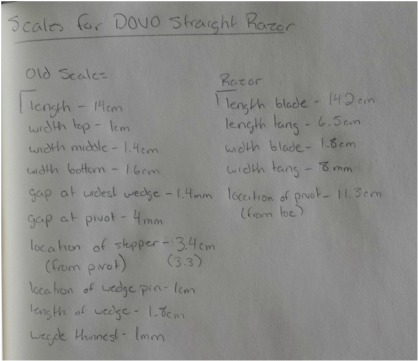 Scales for DOVO Straight Razor
Old Scales
length - 14cm
width top - 1cm
width middle - 1.4cm
width bottom - 1.6cm
gap at widest wedge - 1.4mm
gap at pivot - 4mm
location of stopper - 3.4cm
(from pivot) (3.3)
location of wedge pin - 1cm
length of wedge - 1.8cm
wegde thinnest - 1mm
Razor
length blade - 14.2cm
length tang - 6.5cm
width blade - 1.8cm
width tang - 8mm
location of pivot - 11.3cm
(from toe)